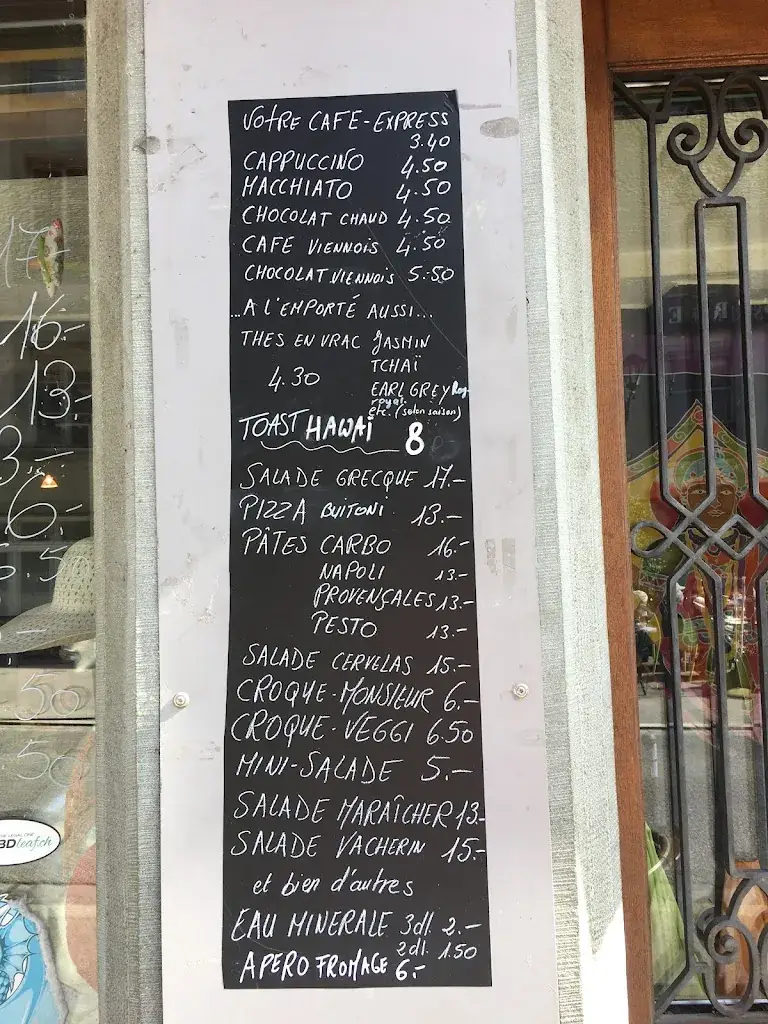 VOTRE CAFE-EXPRESS
3.40
CAPPUCCINO 4.50
MACCHIATO 4.50
CHOCOLAT CHAUD 4.50
CAFE VIENNOIS 4.50
CHOCOLAT VIENNOIS 5.50
...A L'EMPORTÉ AUSSI...
THES EN VRAC JASMIN
TCHAÏ
4.30
EARL GREY
royal.
etc. (selon saison)
TOAST HAWAÏ 8
SALADE GRECQUE 17.-
PIZZA BUITONI 13.-
PÂTES CARBO 16.-
NAPOLI 13.-
PROVENÇALES 13.-
PESTO 13.-
SALADE CERVELAS 15.-
CROQUE-MONSIEUR 6.-
CROQUE-VEGGI 6.50
MINI-SALADE 5.-
SALADE MARAÎCHER 13.-
SALADE VACHERIN 15.-
et bien d'autres
EAU MINERALE 3dl. 2.-
2dl. 1.50
APERO FROMAGE 6.-
17.-
16.-
13.-